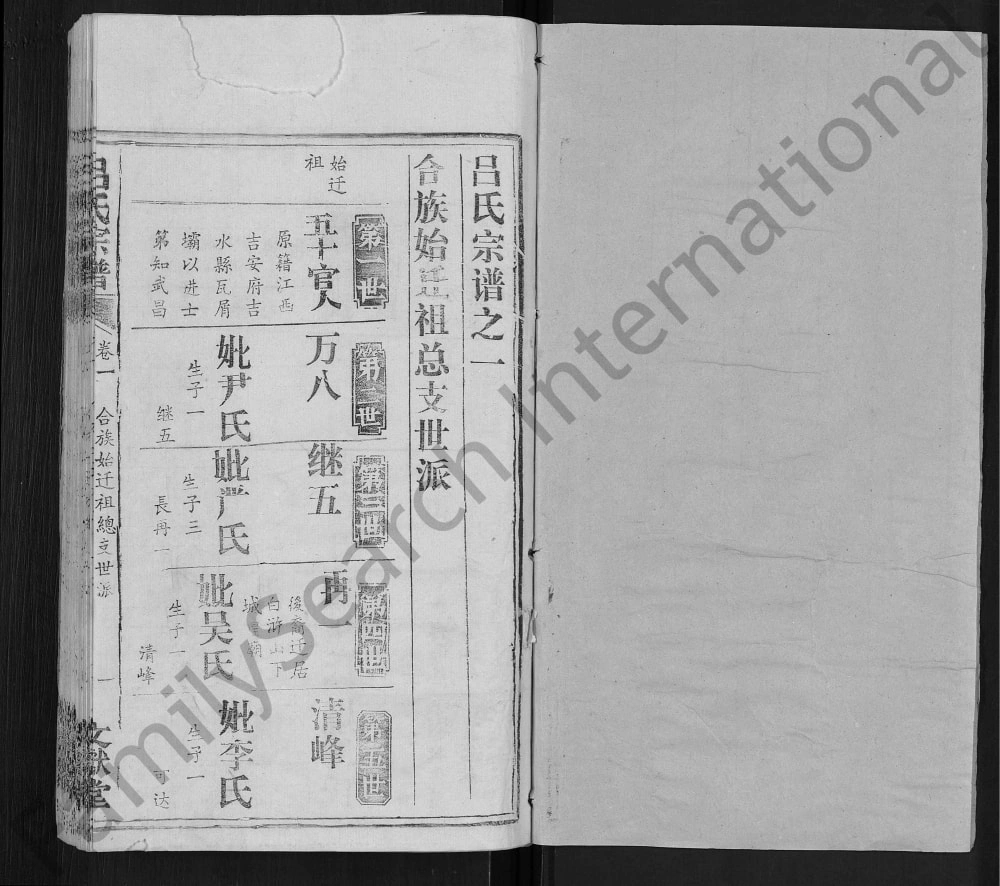 吕氏宗谱之一
合族始迁祖总支世派
第一世
始迁
祖
五十官人
原籍江西
吉安府吉
水縣瓦屑
壩以进士
第知武昌
第二世
万八
妣尹氏
生子一
继五
第三世
继五
妣严氏
生子三
長再一
第四世
再一
後裔迁居
白浒山下
妣吴氏
生子一
清峰
第五世
清峰
妣李氏
生子一
可达
吕氏宗譜
卷一
合族始迁祖總支世派
一
文献堂
FamilySearch International